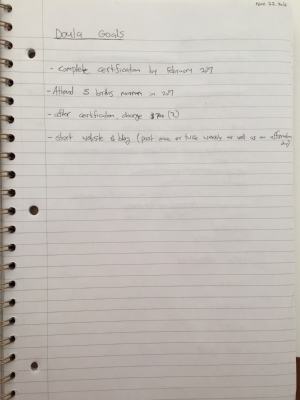 Doula Goals
- complete certification by February 2017
- Attend 5 births minimum in 2017
- after certification, charge $700 (?)
- start website & blog (post once or twice weekly as well as an affirmation